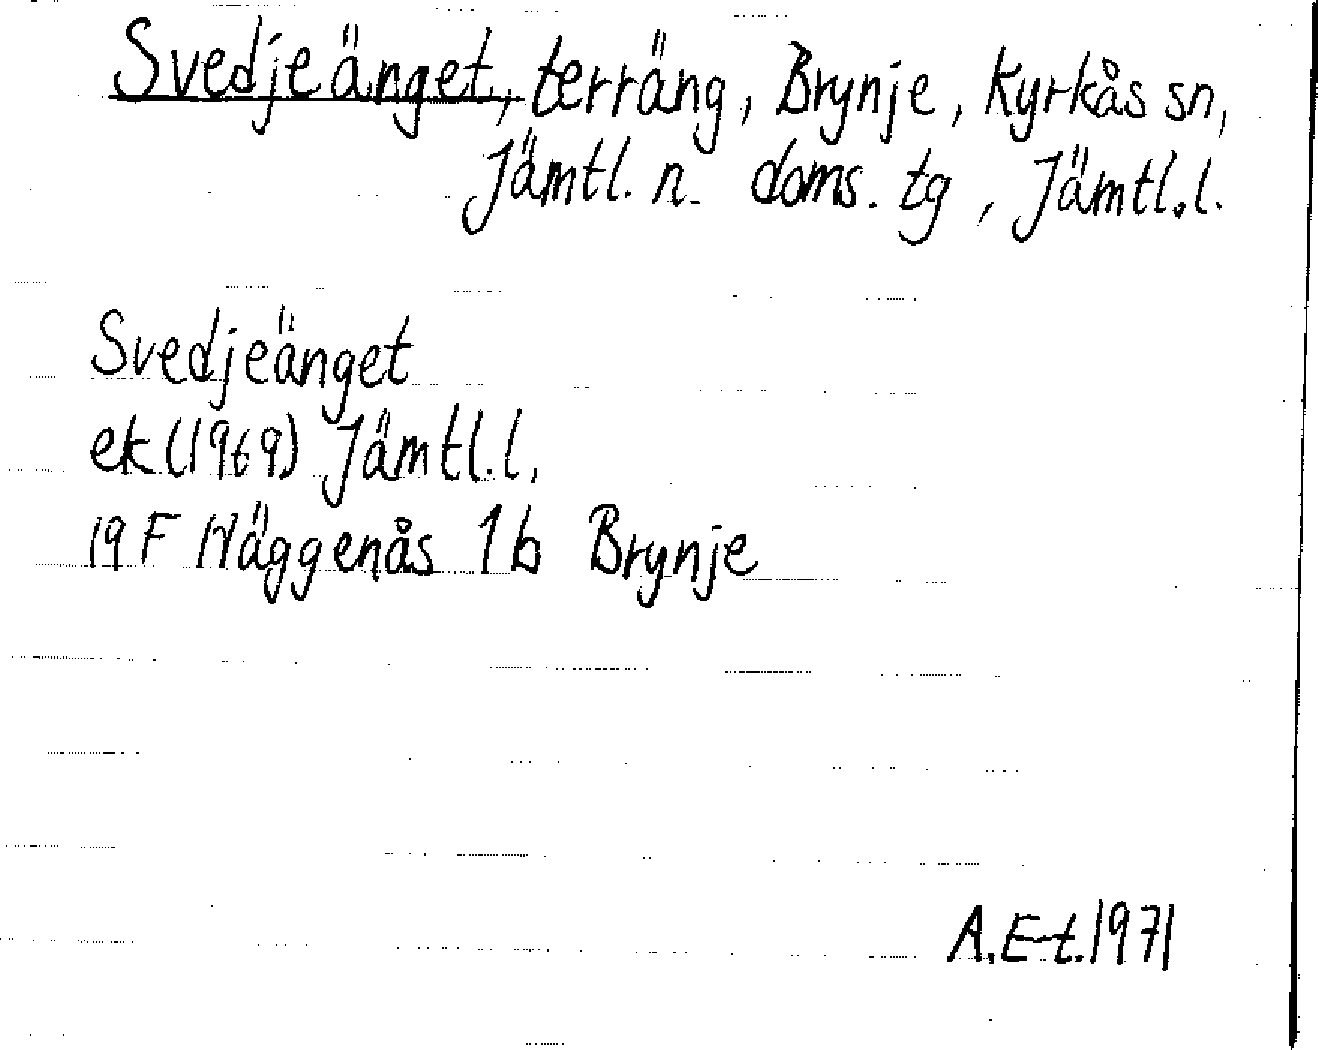 Svedjeänget, terräng, Brynje, Kyrkås sn,
Jämtl. n. doms. tg, Jämtl.l.
Svedjeänget
ek (1969) Jämtl.l.
19 F Häggenås 1b Brynje
A.E-t.1971